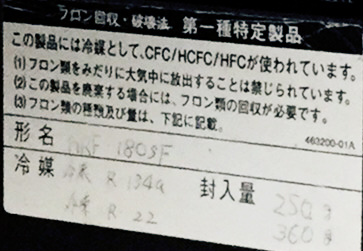 フロン回収・破壊法 第一種特定製品
この製品には冷媒として、CFC/HCFC/HFCが使われています。
(1)フロン類をみだりに大気中に放出することは禁じられています。
(2)この製品を廃棄する場合には、フロン類の回収が必要です。
(3)フロン類の種類及び量は、下記に記載。
463200-01A
形名 180SF
冷媒 R 134a 封入量 250g
R 22 360g